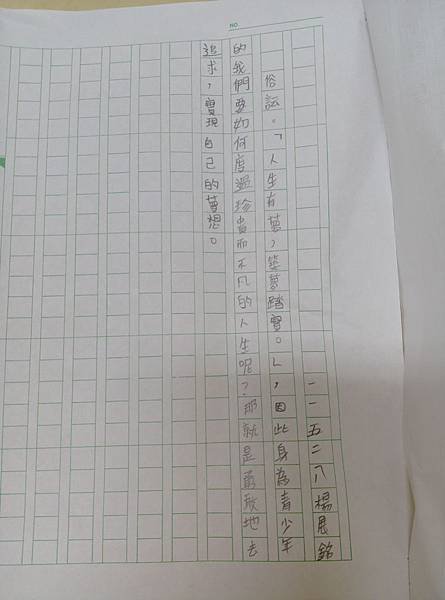 NO
一一五二八楊展銘
俗訟。「人生有夢，築夢踏實。」，因此身為青少年
的我們要如何度過珍貴而不凡的人生呢？那就是勇敢地去
追求，實現自己的夢想。